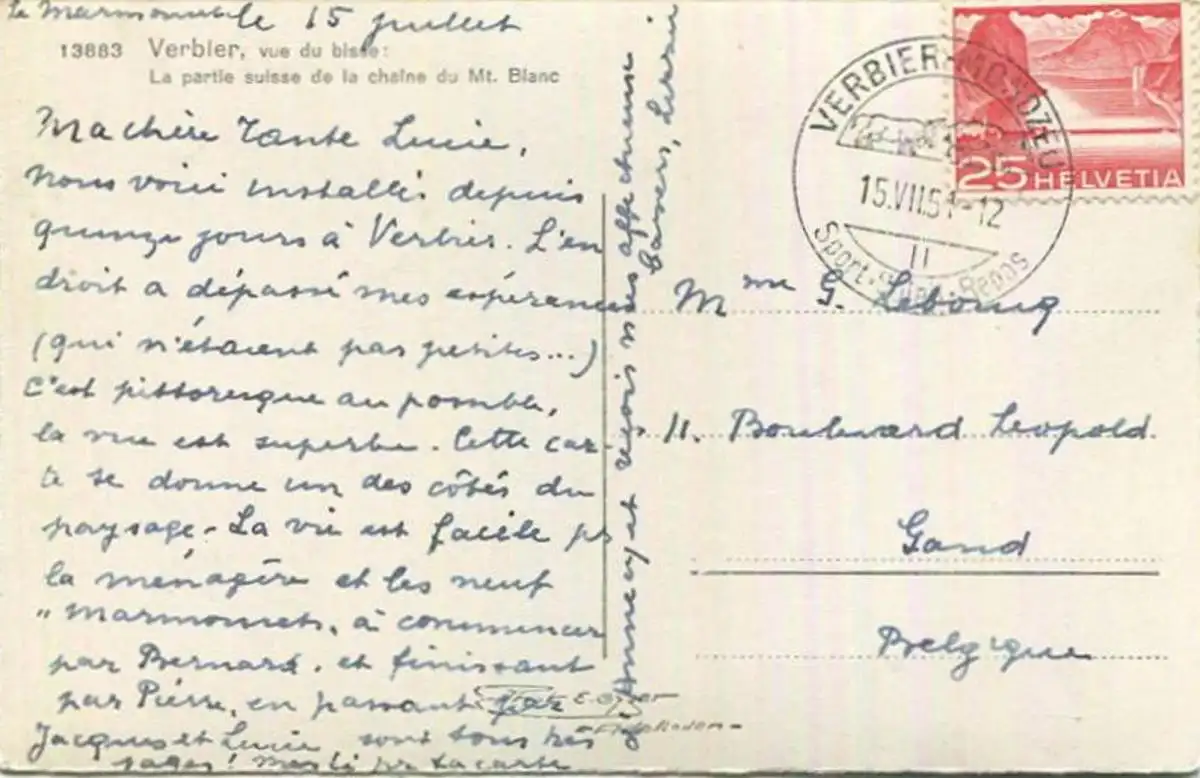 le 15 juillet
13883 Verbier, vue du bisse:
La partie suisse de la chaîne du Mt. Blanc
Ma chère Tante Lucie,
nous voici installés depuis
quinze jours à Verbier. L'en
droit a dépassé mes espérances
(qui n'étaient pas petites...)
C'est pittoresque au possible,
la vue est superbe. Cette car-
te donne un des côtés du
paysage. La vie est facile pr
la ménagère et les neuf
"marmousets, à commencer
par Bernard, et finissant
par Pierre, en passant par
Jacques et Lucie sont tous très
sages! Merci pr ta carte
d'Annecy et reçois nos affectueux
baisers,
VERBIER-MONDZEU
15.VII.51-12
Sport Repos
25 HELVETIA
Mme G. Lebourg
11. Boulevard Léopold
Gand
Belgique